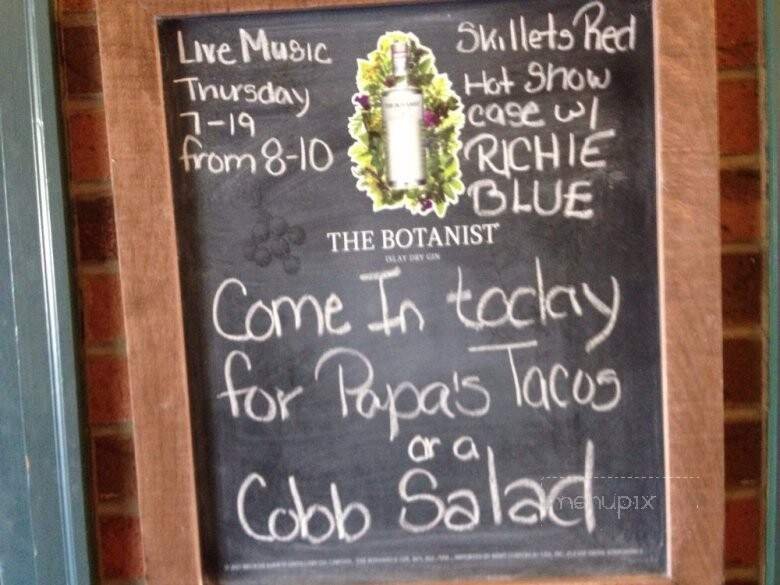 Live Music
Thursday
7-19
from 8-10
Skillets Red
Hot Show
case w/
RICHIE
BLUE
THE BOTANIST
ISLAY DRY GIN
Come In today
for Papa's Tacos
or a
Cobb Salad
menupix